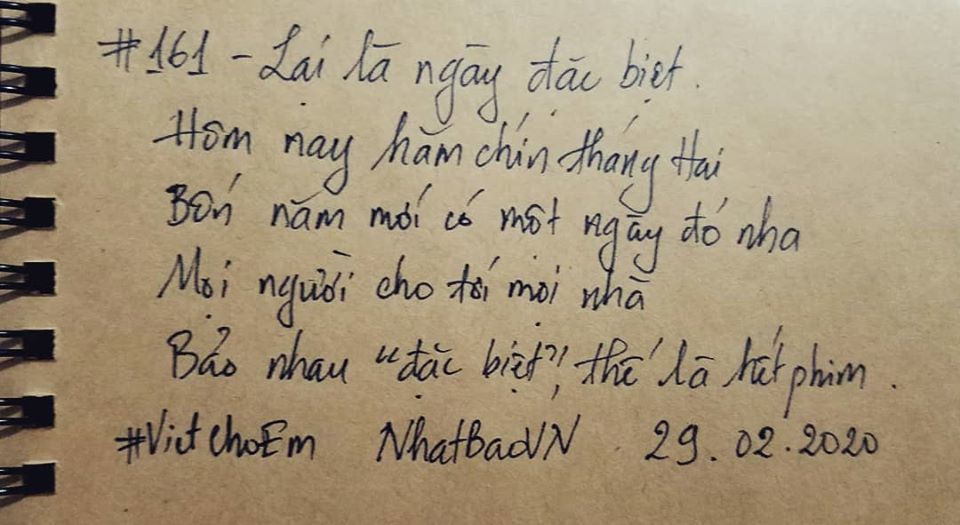 #161 - Lại là ngày đặc biệt.
Hôm nay hăm chín tháng Hai
Bốn năm mới có một ngày đó nha
Mọi người cho tới mọi nhà
Bảo nhau "đặc biệt", thế là hết phim.
#VietchoEm NhatBaoVN 29.02.2020